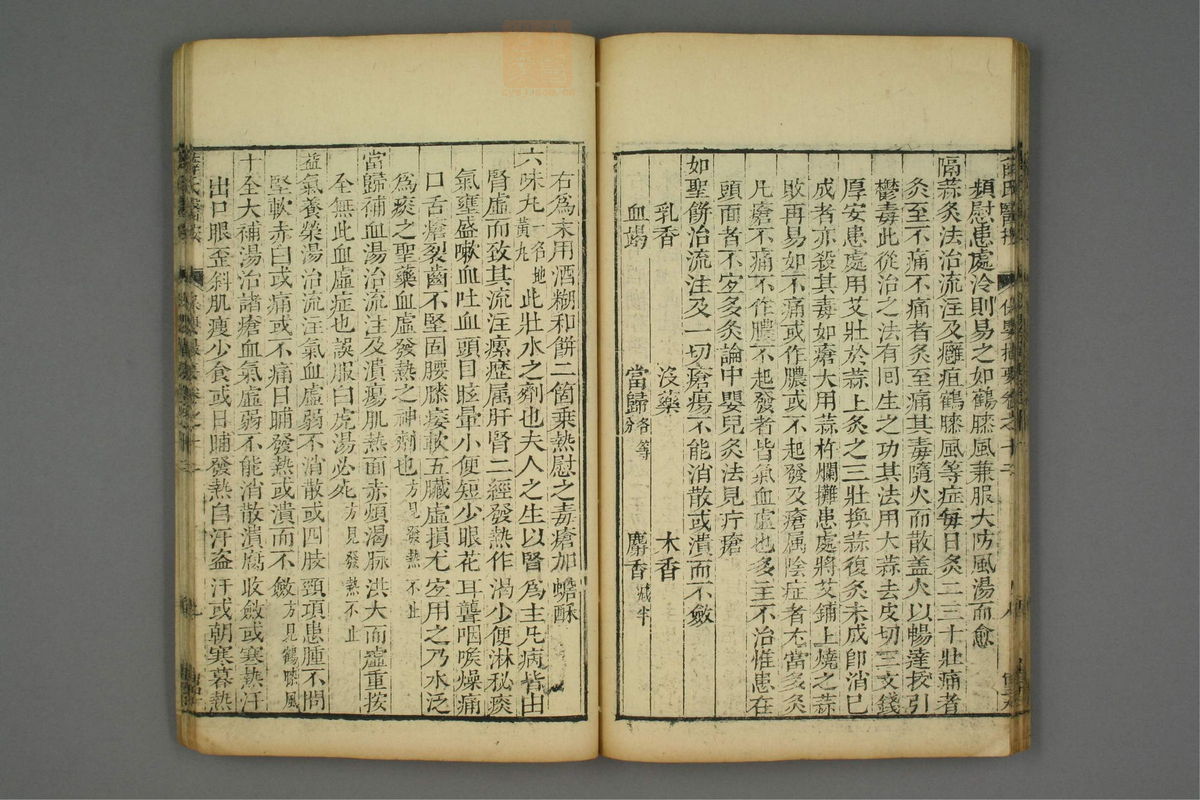 頻慰患處冷則易之如鶴膝風兼服大防風湯而愈
隔蒜灸法治流注及癰疽鶴膝風等症每日灸二三十壯痛者
灸至不痛不痛者灸至痛其毒隨火而散盖火以暢達拔引
鬱毒此從治之法有回生之功其法用大蒜去皮切三文錢
厚安患處用艾壯於蒜上灸之三壯換蒜復灸未成即消已
成者亦殺其毒如瘡大用蒜杵爛攤患處將艾鋪上燒之蒜
敗再易如不痛或作膿或不起發及瘡属陰症者尤當多灸
凡瘡不痛不作膿不起發者皆氣血虛也多主不治惟患在
頭面者不宜多灸論中嬰兒灸法見疔瘡
如聖餅治流注及一切瘡瘍不能消散或潰而不斂
乳香 沒藥 木香
血竭 當歸各等分 麝香减半
右為末用酒糊和餅二箇乘熱慰之毒瘡加蟾酥
六味丸一名地黃丸此壯水之劑也夫人之生以腎為主凡病皆由
腎虛而致其流注瘰癧属肝腎二經發熱作渴少便淋秘痰
氣壅盛嗽血吐血頭目眩暈小便短少眼花耳聾咽喉燥痛
口舌瘡裂齒不堅固腰膝痿軟五臟虛損尤宜用之乃水泛
為痰之聖藥血虛發熱之神劑也方見發熱不止
當歸補血湯治流注及潰瘍肌熱面赤煩渴脉洪大而虛重按
全無此血虛症也誤服白虎湯必死方見發熱不止
益氣養榮湯治流注氣血虛弱不消散或四肢頸項患腫不問
堅軟赤白或痛或不痛日晡發熱或潰而不斂方見鶴膝風
十全大補湯治諸瘡血氣虛弱不能消散潰腐收斂或寒熱汗
出口眼歪斜肌瘦少食或日晡發熱自汗盗汗或朝寒暮熱